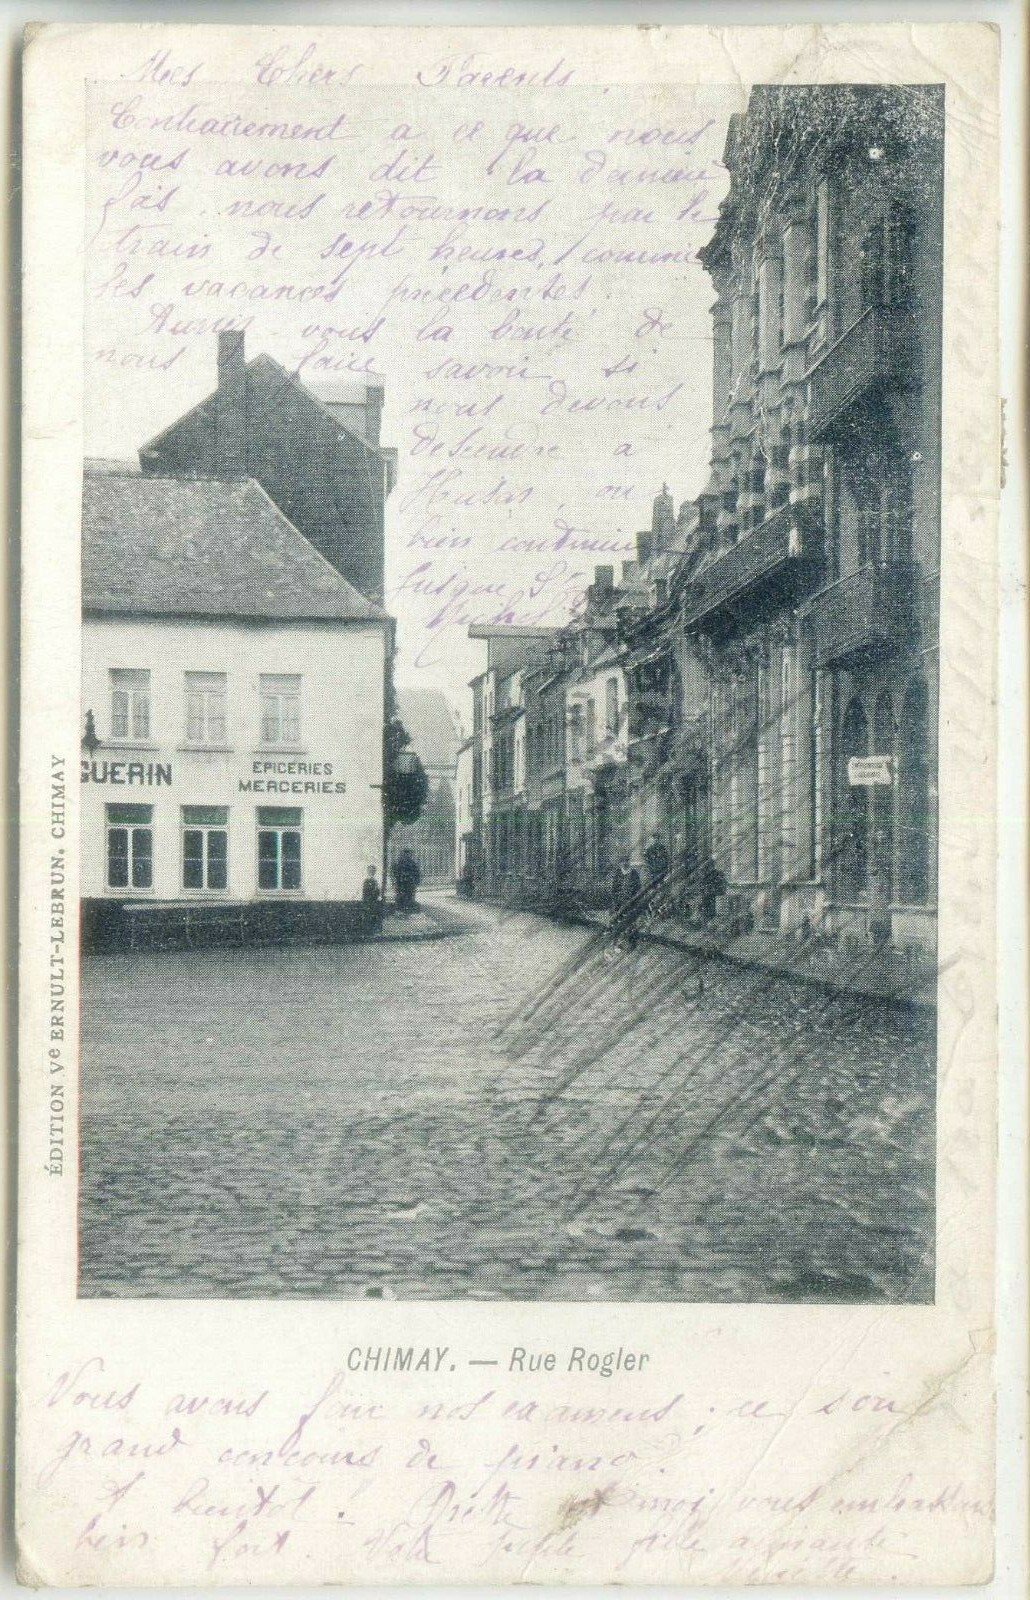 Mes Chers Parents,
Contrairement a ce que nous
vous avons dit la dernière
fois, nous retournons par le
train de sept heures, comme
les vacances précédentes.
Aurez-vous la bonté de
nous faire savoir si
nous devons
descendre à
ou
bien continuer
jusque St
Michel
GUERIN
EPICERIES
MERCERIES
ÉDITION Ve ERNULT-LEBRUN, CHIMAY
CHIMAY. — Rue Rogier
Nous avons fini nos examens; ce soir
grand concours de piano.
A bientôt! et moi vous embrassons
bien fort. Votre petite fille aimante